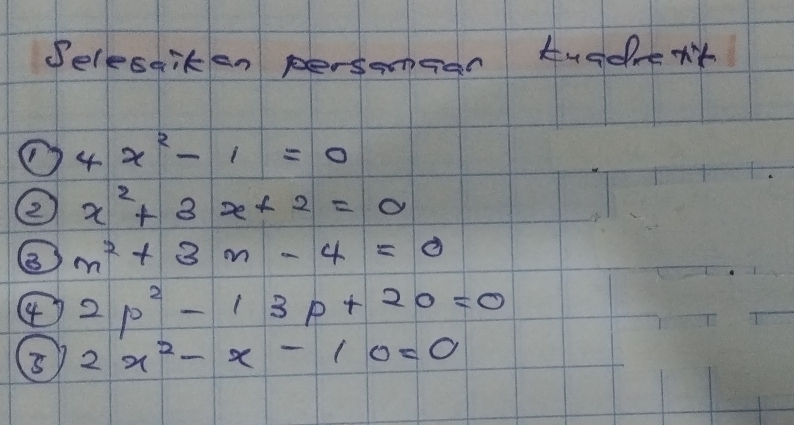 Selesaikan persamaan kuadratik
① 4x² - 1 = 0
② x² + 3x + 2 = 0
③ m² + 3m - 4 = 0
④ 2p² - 13p + 20 = 0
⑤ 2x² - x - 10 = 0